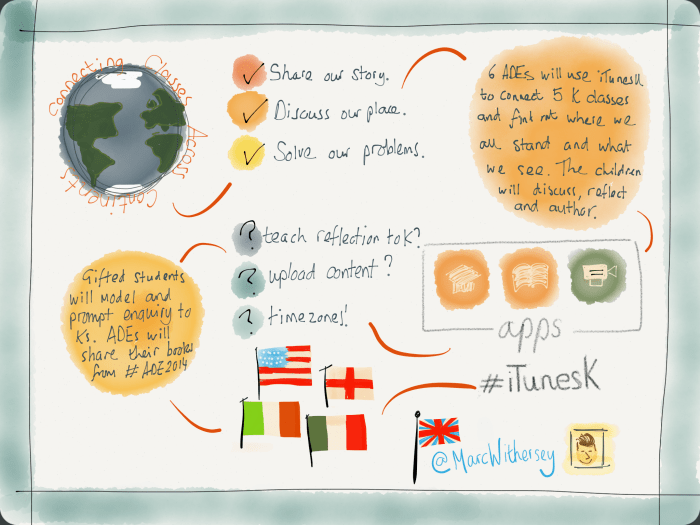 Connecting Classes
Across
Continents
✓ Share our story.
✓ Discuss our place.
✓ Solve our problems.
6 ADEs will use iTunesK
to connect 5 K classes
and find out where we
all stand and what
we see. The children
will discuss, reflect
and author.
? teach reflection to K?
? upload content?
? timezones!
Gifted students
will model and
prompt enquiry to
Ks. ADEs will
share their books
from #ADE2014
apps
#iTunesK
@MarcWithersey